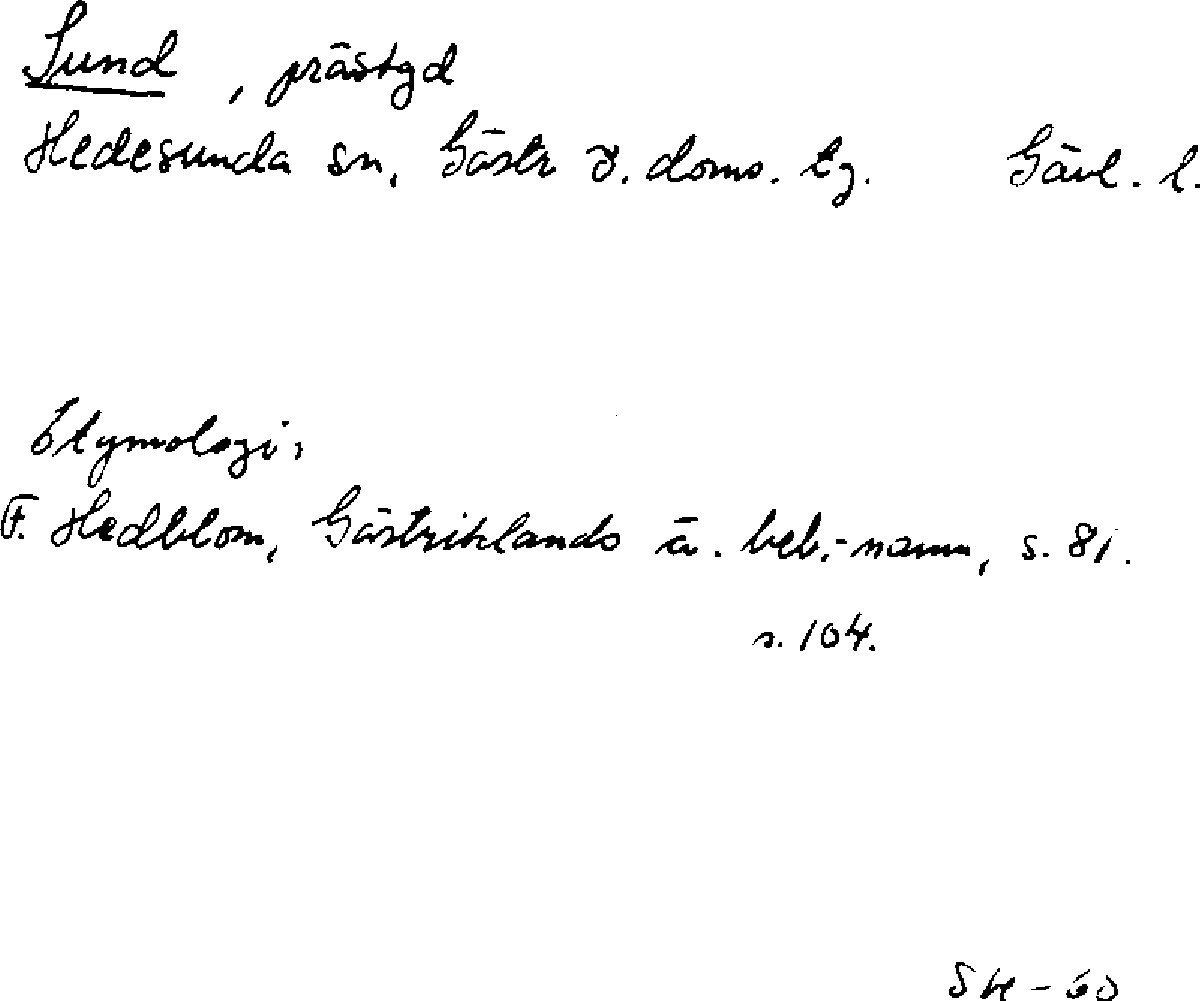 Sund, prästgd
Hedesunda sn, Gästr ö. doms. tg. Gävl. l.
Etymologi:
F. Hedblom, Gästriklands ä. beb.-namn, s. 81.
s. 104.